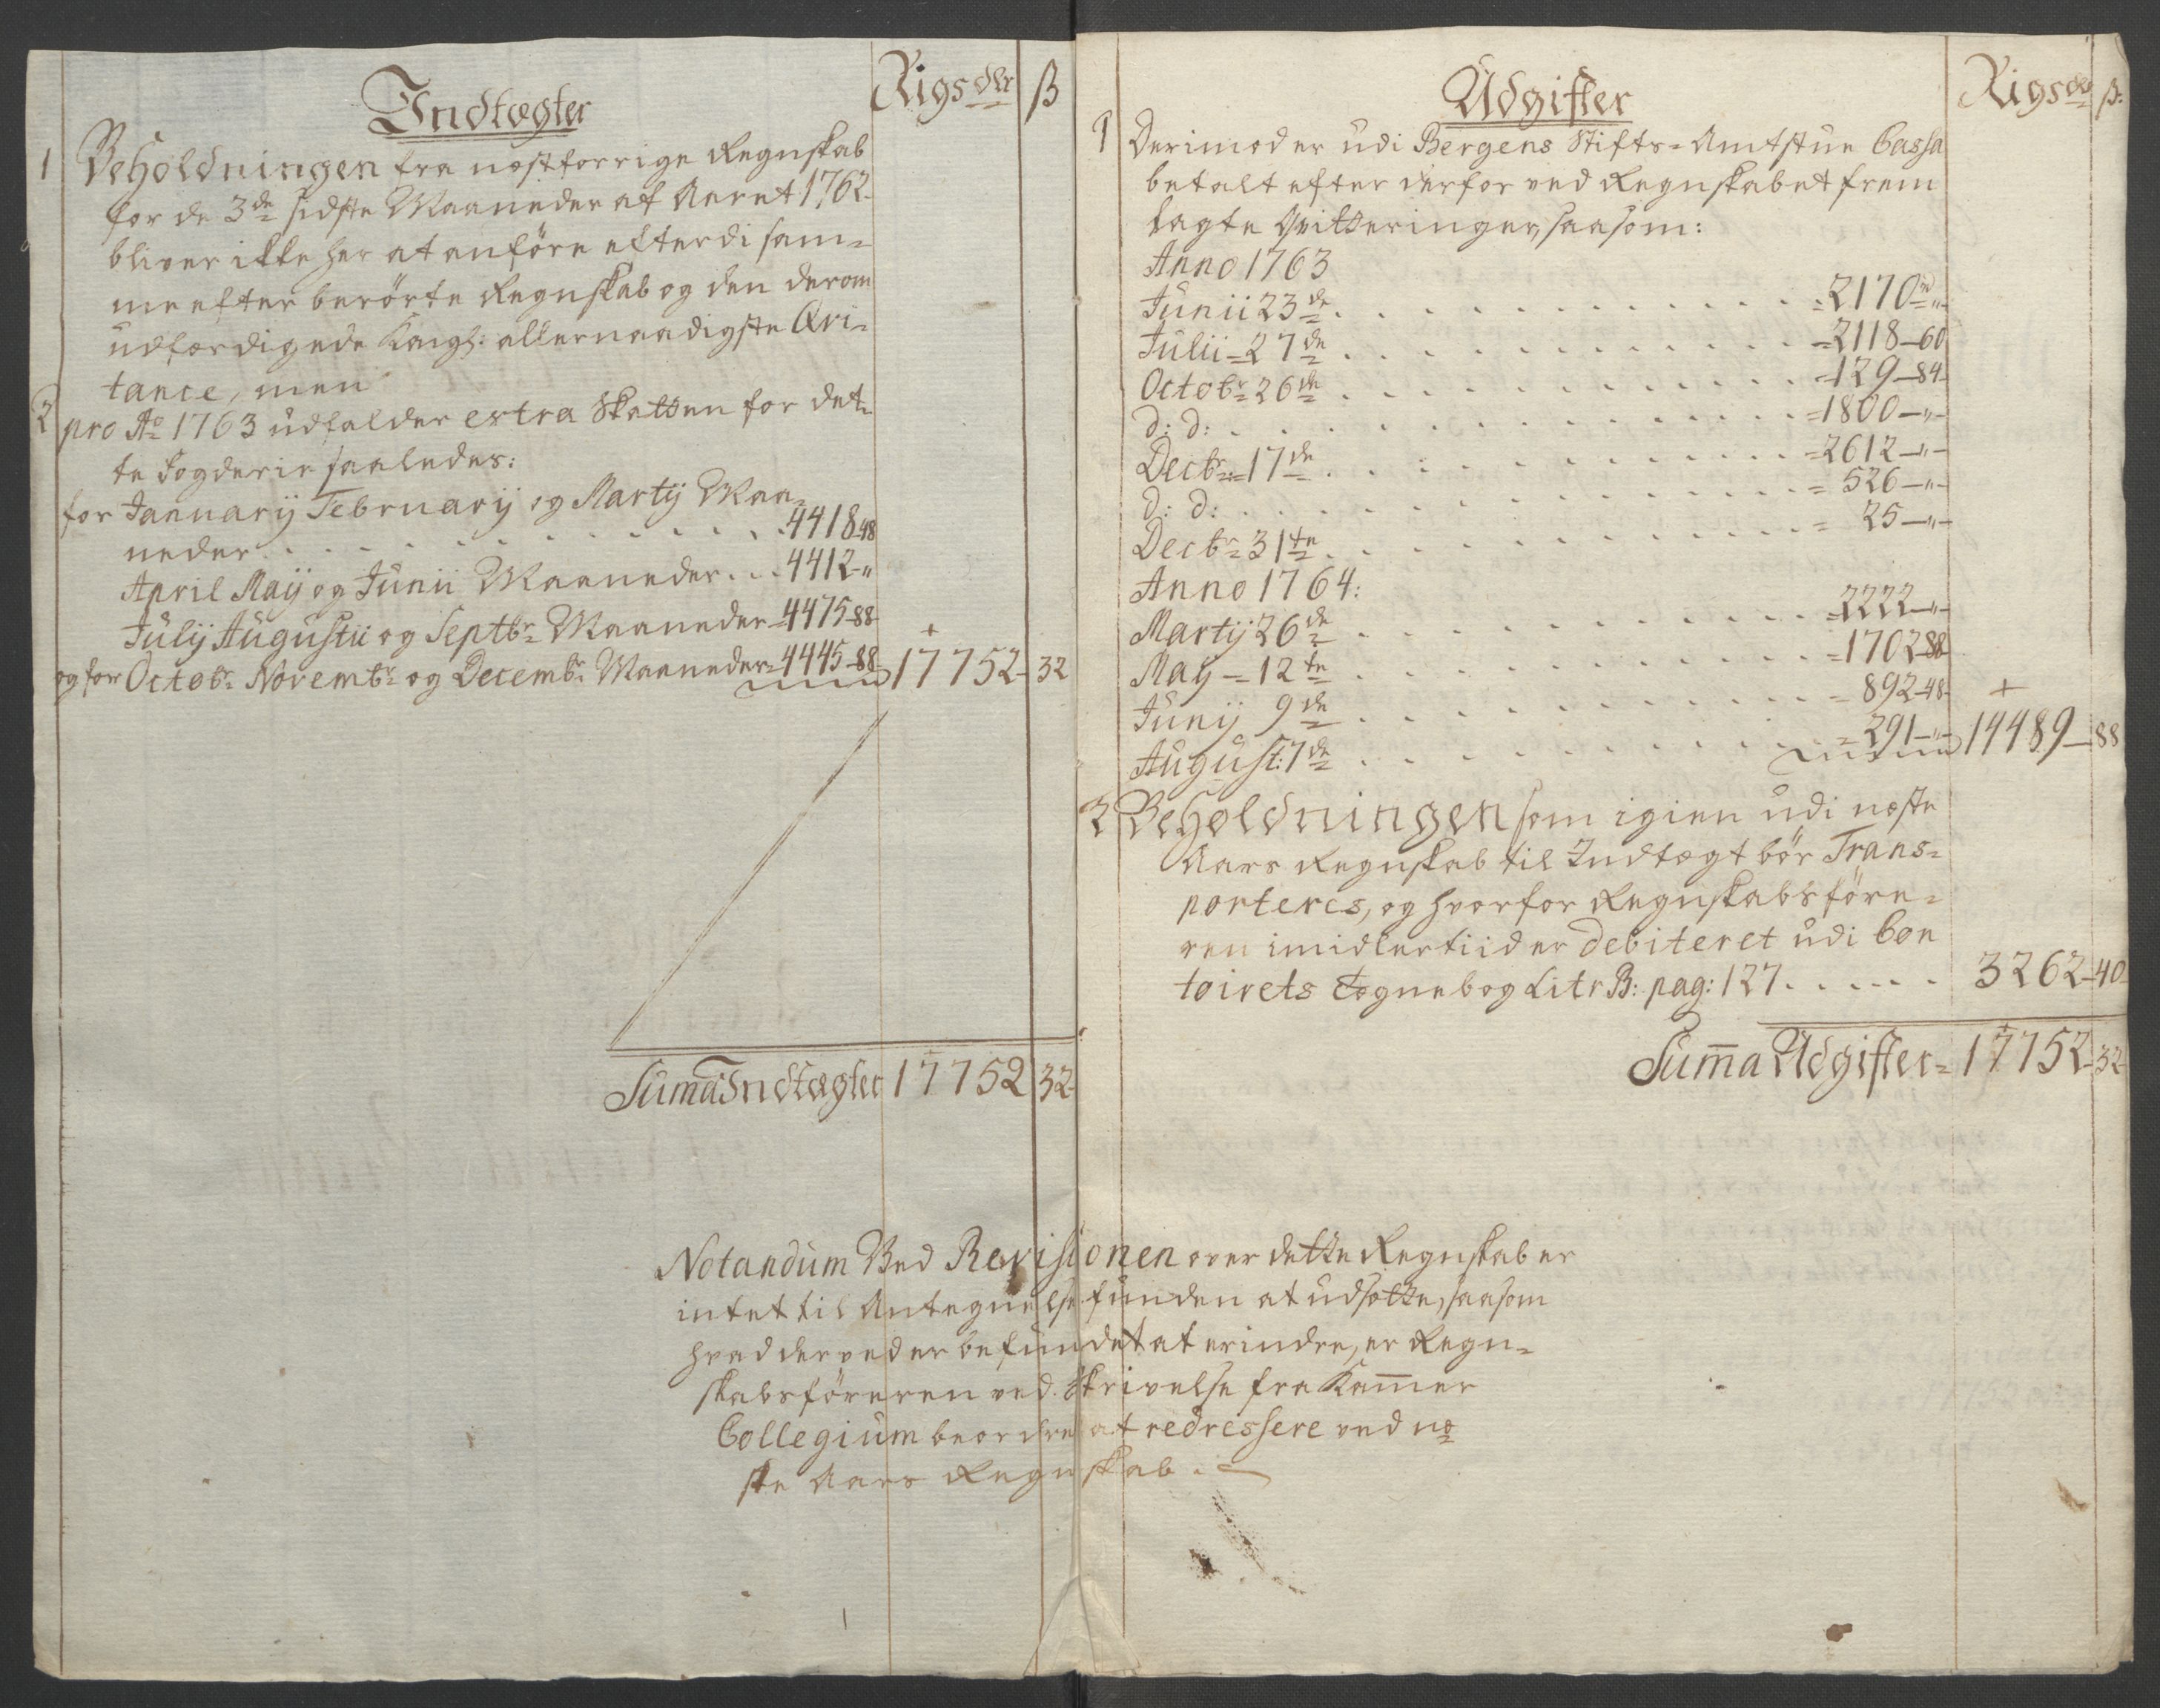 Indtægter
Rigsdlr ß
1 Beholdningen fra næstforrige Regnskab
for de 3de sidste Maaneder af Aaret 1762.
bliver ikke her at anføre efterdi sam-
me efter berørte Regnskab og den derom
udfærdigede Kongl: allernaadigste Qvi-
tance, men
2 pro Ao 1763 udfalder extra Skatten for det-
te Fogderie saaledes:
for Januarij Februarij og Martij Maa-
neder . . . 4418-48
April Maij og Junii Maaneder . . . 4412-"
Julij Augustii og Septbr Maaneder = 4475-88
og for Octobr Novembr og Decembr Maaneder = 4445-88 17752-32
Suma Indtægter 17752 32-
Udgifter
Rigsdlr ß:
1 Derimod er udi Bergens Stifts-Amtstue Cassa
betalt efter derfor ved Regnskabet frem
lagte Qvitteringer, saasom:
Anno 1763
Junii 23de . . . = 2170rd "-
Julii = 27de . . . = 2118-60
Octobr 26de . . . = 129-84-
d: d: . . . = 1800-"-
Decbr = 17de . . . = 2612-"-
d: d: . . . = 526-"-
Decbr 31te . . . = 25-"-
Anno 1764:
Martij 26de . . . = 2222-"-
Maij = 12te . . . = 1702-88
Junij 9de . . . = 892-48-
August: 7de . . . = 291-"- 14489-88
2 Beholdningen som igien udi næste
Aars Regnskab til Indtægt bør Trans-
porteres, og hvorfor Regnskabsføre-
ren imidlertiid er debiteret udi Con
toirets Tegnebog Litr B: pag: 127 . . . 3262-40
Suma Udgifter = 17752-32-
Notandum Ved Revisionen over dette Regnskab er
intet til Antegnelse funden at udsætte, saasom
hvad derved er befundet at erindre, er Regn-
skabsføreren ved Skrivelse fra Kammer
Collegium beordret at redressere ved næ
ste Aars Regnskab.